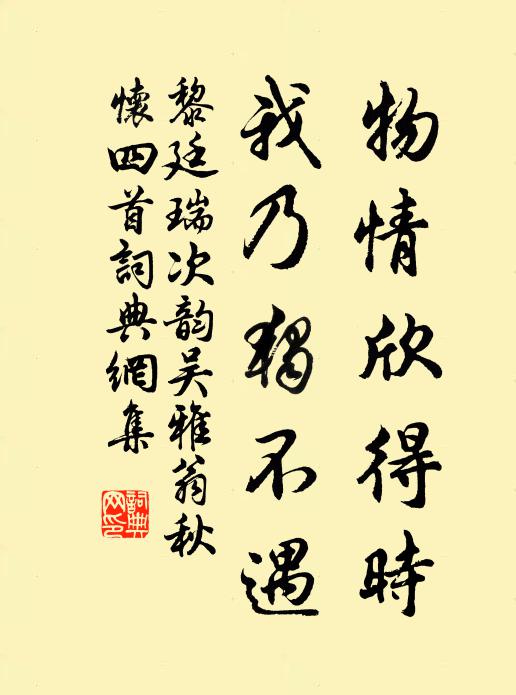 物情欣得時
我乃獨不遇
黎廷瑞次韵吴雅翁秋
懷四首詞典網集
詞典
网印